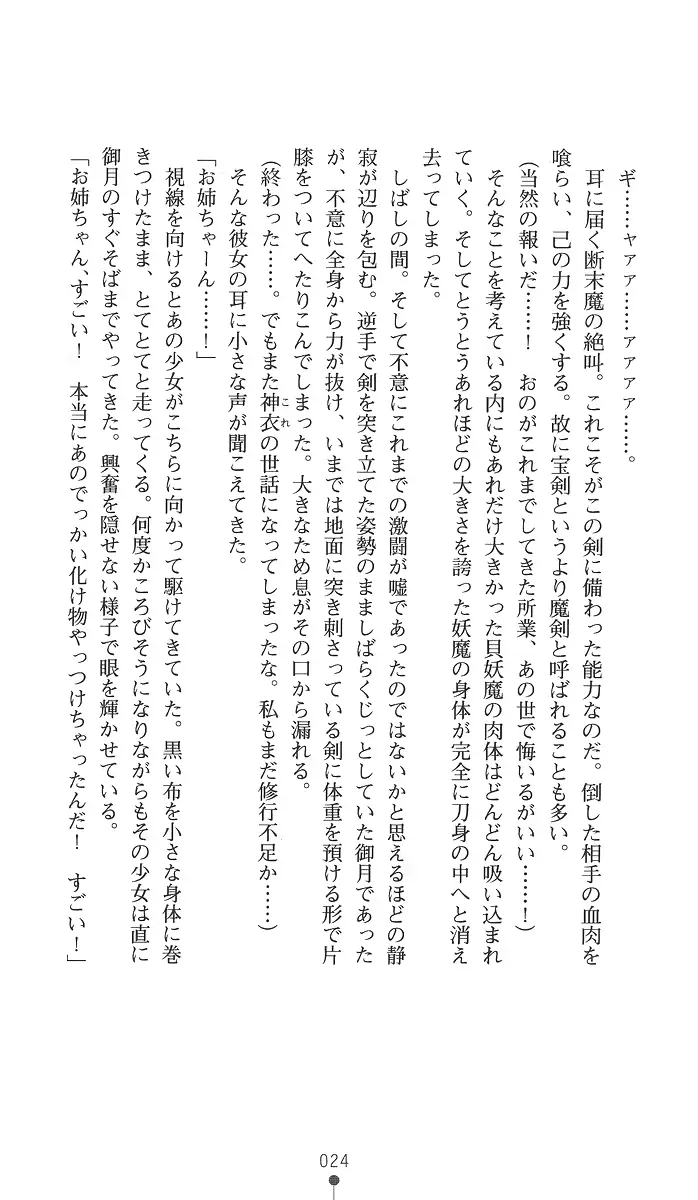 ギ……ャァァ……ァァァァ……。
耳に届く断末魔の絶叫。これこそがこの剣に備わった能力なのだ。倒した相手の血肉を
喰らい、己の力を強くする。故に宝剣というより魔剣と呼ばれることも多い。
（当然の報いだ……！　おのがこれまでしてきた所業、あの世で悔いるがいい……！）
そんなことを考えている内にもあれだけ大きかった貝妖魔の肉体はどんどん吸い込まれ
ていく。そしてとうとうあれほどの大きさを誇った妖魔の身体が完全に刀身の中へと消え
去ってしまった。
しばしの間。そして不意にこれまでの激闘が嘘であったのではないかと思えるほどの静
寂が辺りを包む。逆手で剣を突き立てた姿勢のまましばらくじっとしていた御月であった
が、不意に全身から力が抜け、いまでは地面に突き刺さっている剣に体重を預ける形で片
膝をついてへたりこんでしまった。大きなため息がその口から漏れる。
（終わった……。でもまた神衣の世話になってしまったな。私もまだ修行不足か……）
これ
そんな彼女の耳に小さな声が聞こえてきた。
「お姉ちゃーん……！」
視線を向けるとあの少女がこちらに向かって駆けてきていた。黒い布を小さな身体に巻
きつけたまま、とてとてと走ってくる。何度かころびそうになりながらもその少女は直に
御月のすぐそばまでやってきた。興奮を隠せない様子で眼を輝かせている。
「お姉ちゃん、すごい！　本当にあのでっかい化け物やっつけちゃったんだ！　すごい！」
024